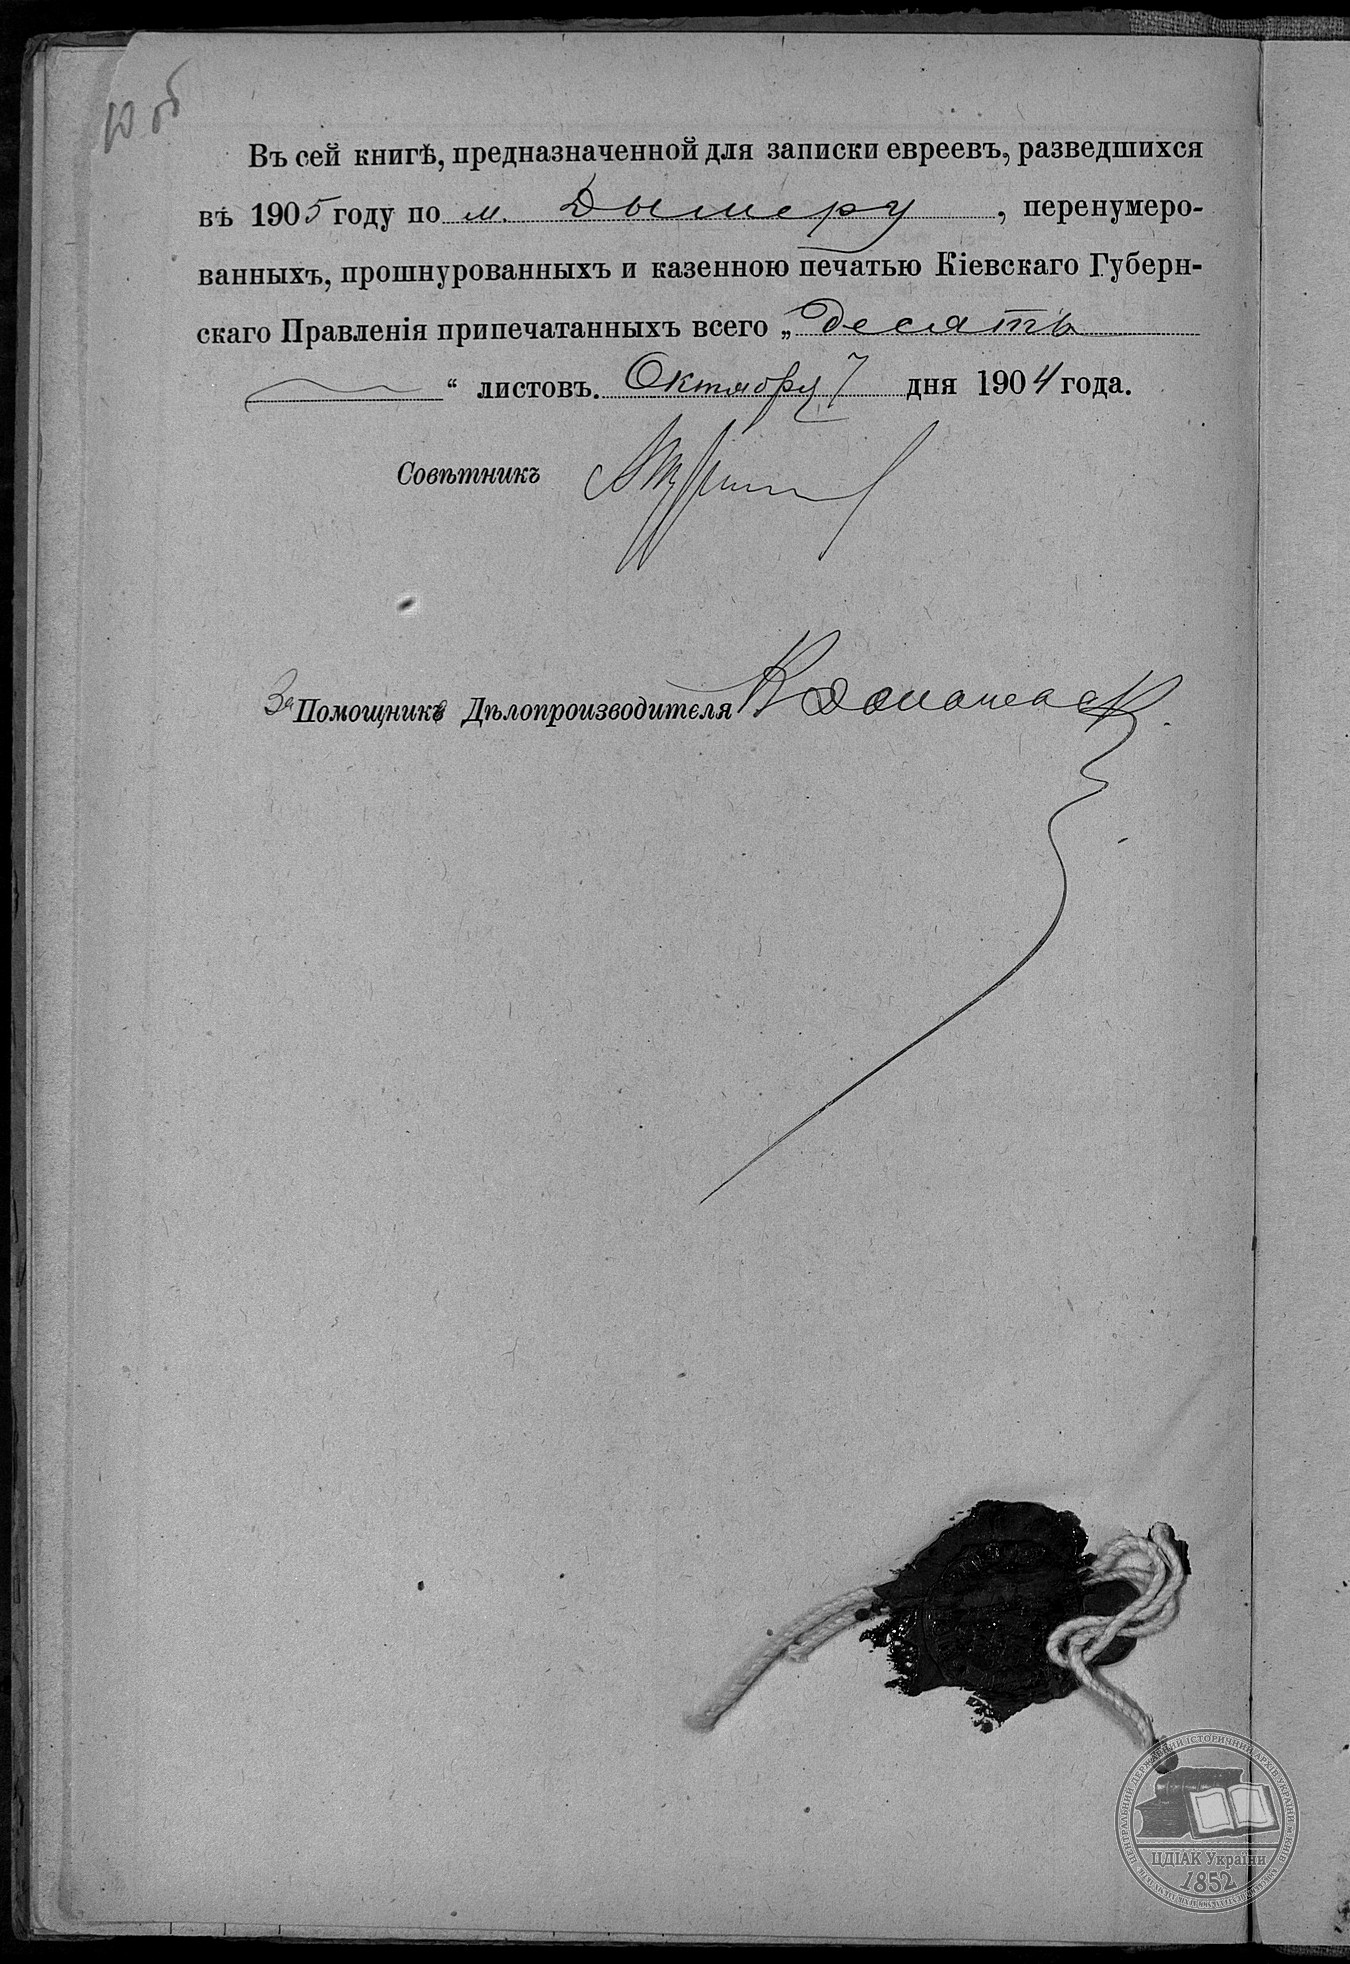 10 об
Въ сей книгѣ, предназначенной для записки евреевъ, разведшихся
въ 1905 году по м. Дымеру, перенумеро-
ванныхъ, прошнурованныхъ и казенною печатью Кіевскаго Губерн-
скаго Правленія припечатанныхъ всего „Десять
“ листовъ. Октября 7 дня 1904 года.
Совѣтникъ
За Помощника Дѣлопроизводителя
ЦЕНТРАЛЬНИЙ ДЕРЖАВНИЙ ІСТОРИЧНИЙ АРХІВ УКРАЇНИ м. КИЇВ
ЦДІАК України
1852